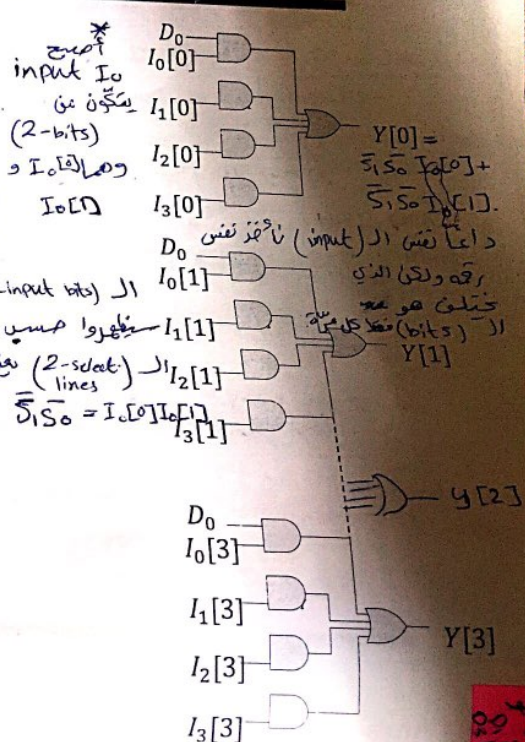 *
أصبح
input I₀
يتكون من
(2-bits)
وهما I₀[0] و
I₀[1]
D₀
I₀[0]
I₁[0]
I₂[0]
I₃[0]
Y[0] =
S̄₁S̄₀ I₀[0] +
S̄₁S̄₀ I₀[1].
دائماً نفس الـ (input) نأخذ نفس
رقمه ولكن الذي
يختلف هو
الـ (bits) فقط كل مرة
D₀
I₀[1]
I₁[1]
I₂[1]
I₃[1]
Y[1]
الـ (input bits
سيظهروا حسب
الـ (2-select
lines)
S̄₁S̄₀ = I₀[0]I₀[1]
y[2]
D₀
I₀[3]
I₁[3]
I₂[3]
I₃[3]
Y[3]